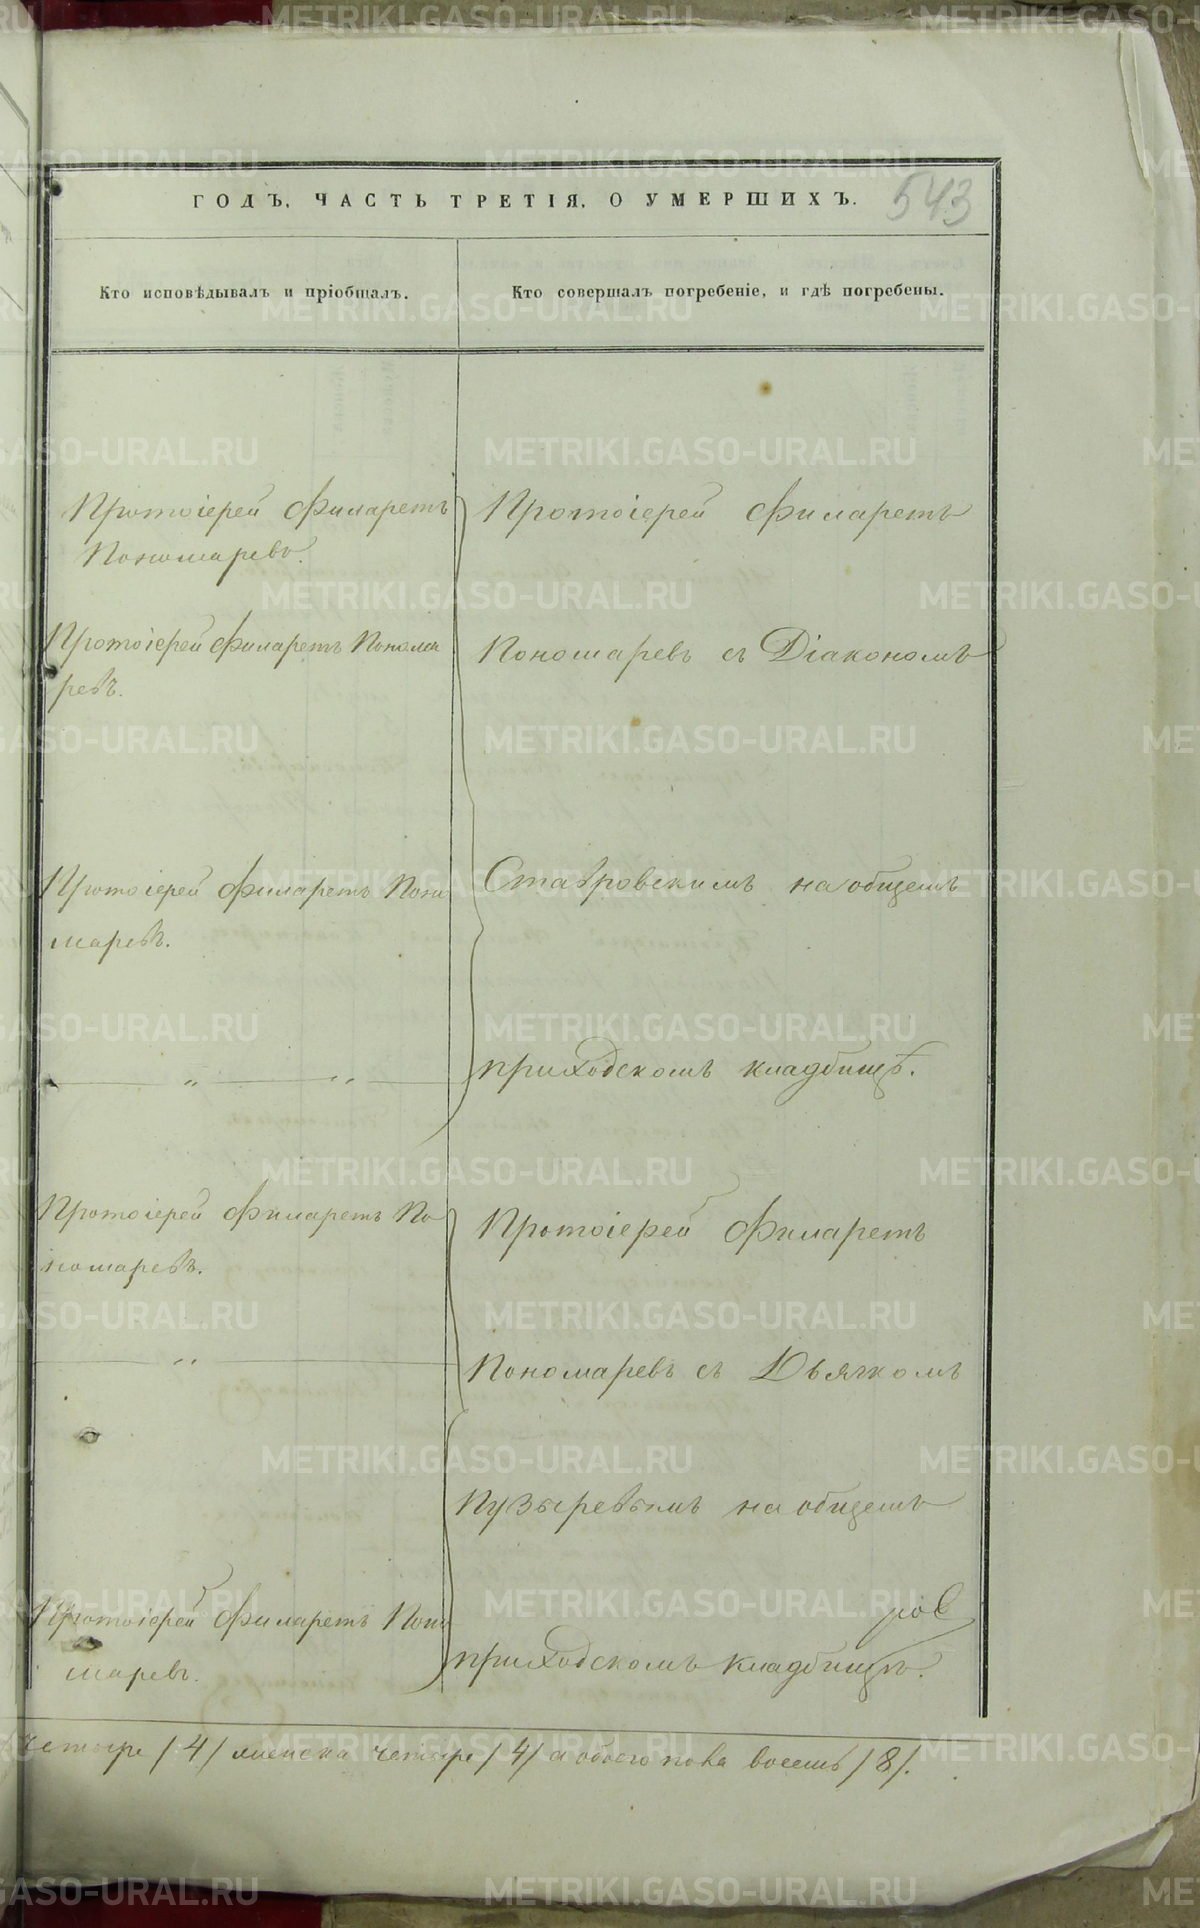 ГОДЪ, ЧАСТЬ ТРЕТІЯ, О УМЕРШИХЪ.
543
Кто исповѣдывалъ и пріобщалъ.
Кто совершалъ погребеніе, и гдѣ погребены.
Протоіерей Филаретъ
Пономаревъ.
Протоіерей Филаретъ Понома
ревъ.
Протоіерей Филаретъ Поно
маревъ.
„ „
Протоіерей Филаретъ По
номаревъ.
„
Протоіерей Филаретъ Поно
маревъ.
Протоіерей Филаретъ
Пономаревъ съ Діакономъ
Ставровскимъ на общемъ
приходскомъ кладбищѣ.
Протоіерей Филаретъ
Пономаревъ съ Дьячкомъ
Пузыревымъ на общемъ
приходскомъ кладбищѣ.
четыре /4/ женска четыре /4/ а обоего пола восемь /8/.
METRIKI.GASO-URAL.RU